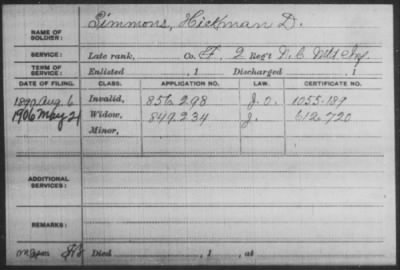 Simmons, Hickman D.
NAME OF SOLDIER:
SERVICE: Late rank, Co. F, 2 Reg't N. C. Mtd Inf.
TERM OF SERVICE: Enlisted , 1 Discharged , 1
DATE OF FILING. CLASS. APPLICATION NO. LAW. CERTIFICATE NO.
1890 Aug. 6 Invalid, 856298 J. O. 1055.189
1906 May 21 Widow, 849234 J. 612.720
Minor,
ADDITIONAL SERVICES:
REMARKS:
Died , 1 , at